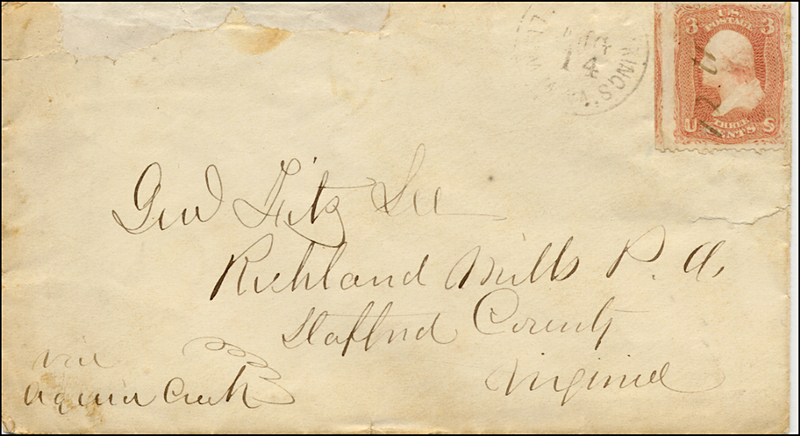 U.S. POSTAGE
3 3
THREE
U CENTS S
AUG
14
RINGS
Genl Fitz Lee
Richland Mills P. O.
Stafford County
Virginia
via
Aquia Creek